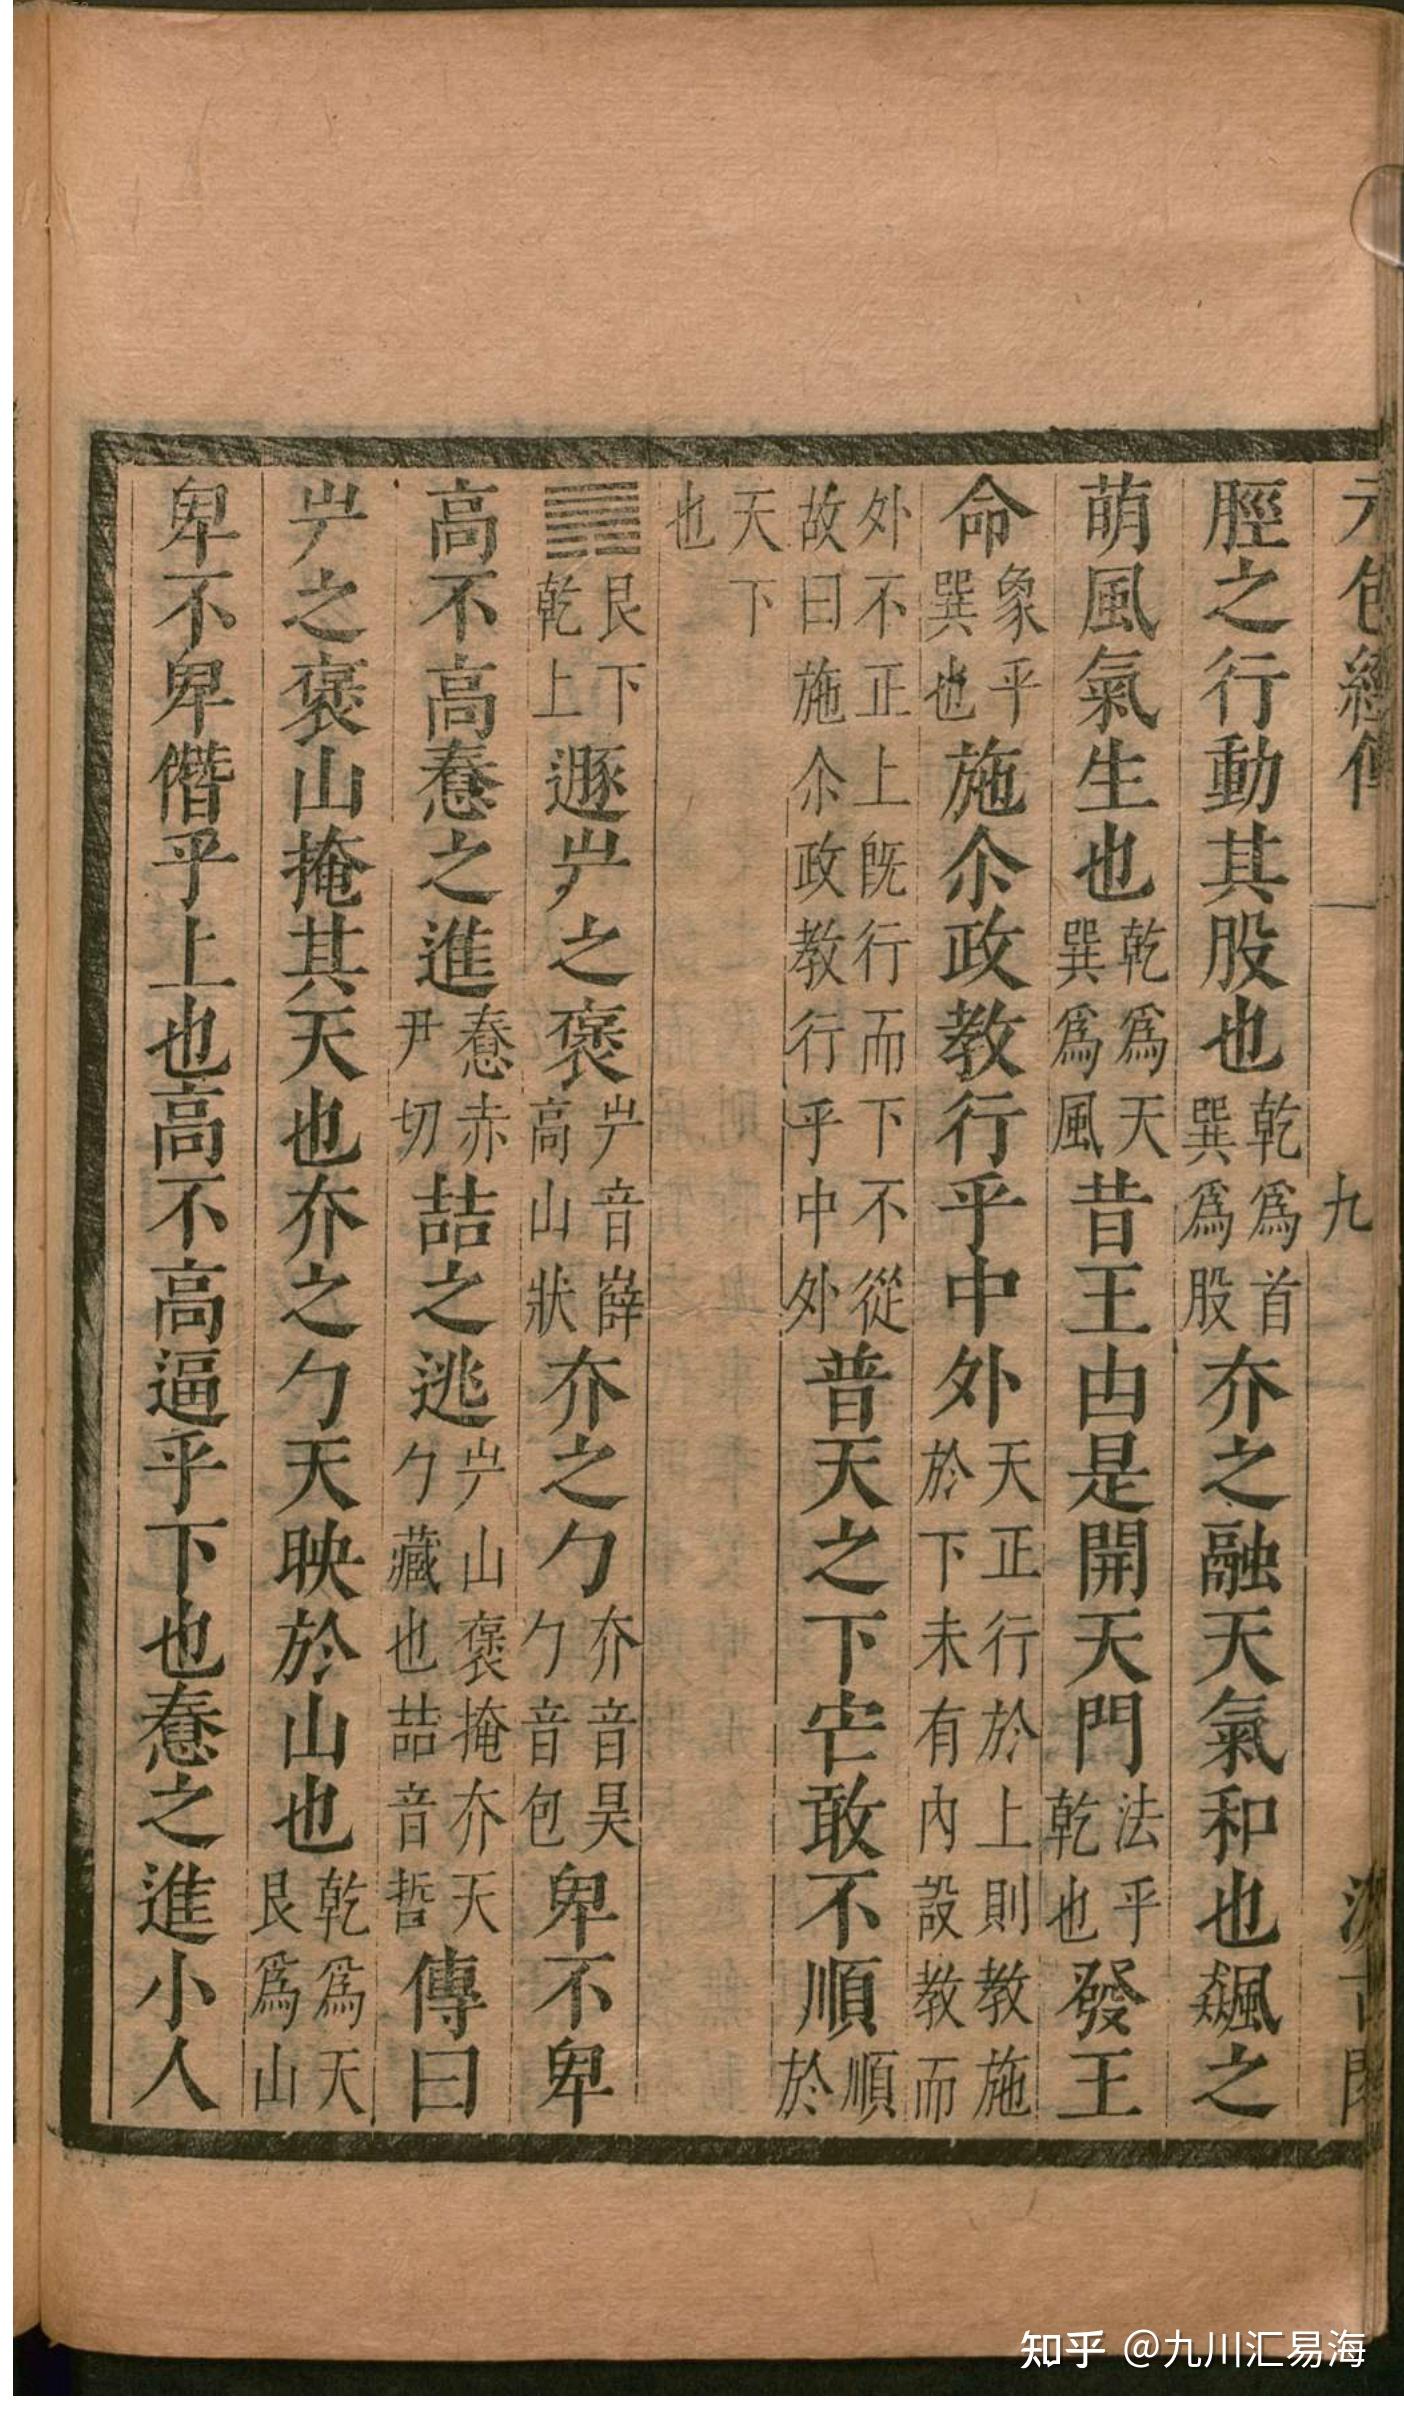 元包經傳 九 汲古閣
脛之行動其股也乾爲首巽爲股夰之融天氣和也飊之
萌風氣生也乾爲天巽爲風昔王由是開天門法乎乾也發王
命象乎巽也施尒政教行乎中外天正行於上則教施於下未有內設教而
外不正上旣行而下不從故曰施尒政教行乎中外普天之下敢不順順於
天下也
䷠艮下乾上遯屵之褒屵音薛高山狀夰之勹夰音昊勹音包卑不卑
高不高惷之進惷赤尹切喆之逃屵山褒掩夰天勹藏也喆音哲傳曰
屵之褒山掩其天也夰之勹天映於山也乾爲天艮爲山
卑不卑僭乎上也高不高逼乎下也惷之進小人
知乎 @九川汇易海